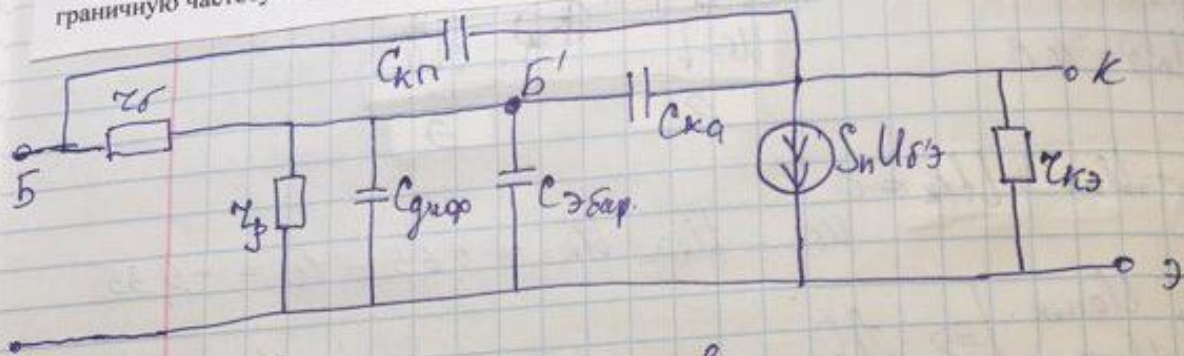 граничную частоту
Cкп
Б'
rб
Cка
К
Б
rβ
Cдиф
Cэбар.
SпUб'э
rкэ
Э